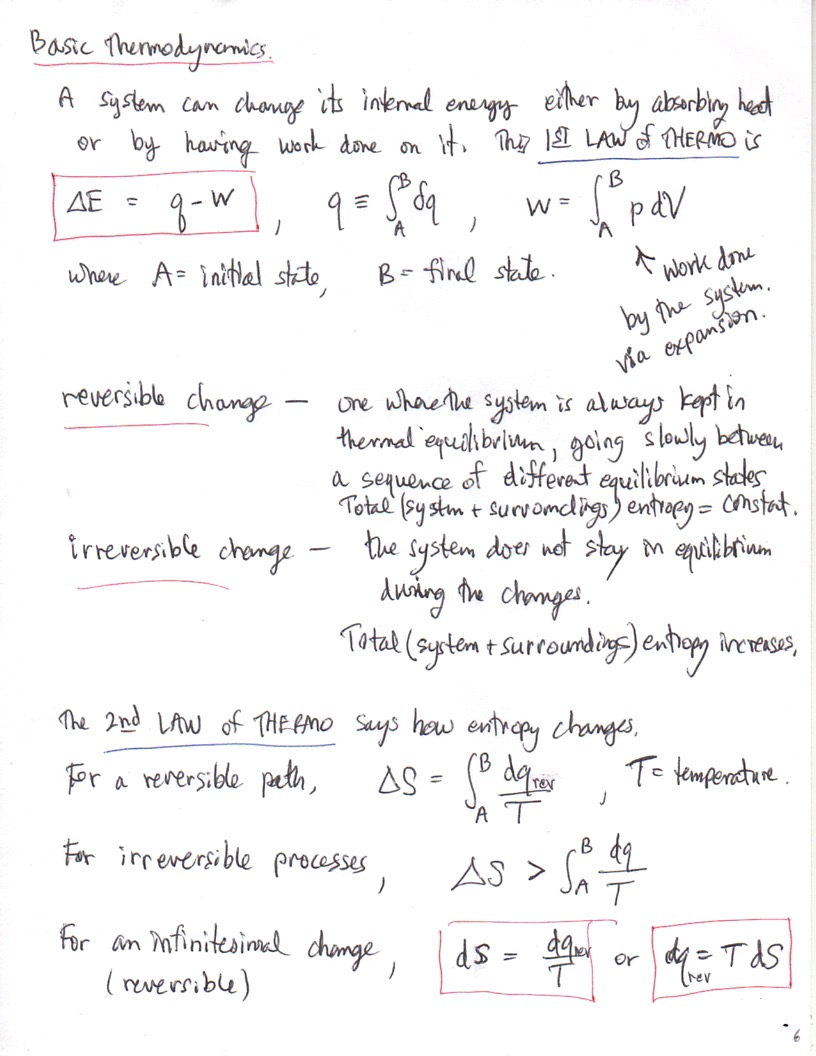 Basic Thermodynamics.
A system can change its internal energy either by absorbing heat
or by having work done on it. The 1ST LAW of THERMO is
ΔE = q - W , q ≡ ∫_A^B δq , W = ∫_A^B p dV
where A = initial state, B = final state.
↑ work done
by the system.
via expansion.
reversible change — one where the system is always kept in
thermal equilibrium, going slowly between
a sequence of different equilibrium states
Total (system + surroundings) entropy = constant.
irreversible change — the system does not stay in equilibrium
during the changes.
Total (system + surroundings) entropy increases,
The 2nd LAW of THERMO says how entropy changes.
For a reversible path, ΔS = ∫_A^B dq_rev / T , T = temperature.
For irreversible processes, ΔS > ∫_A^B dq / T
For an infinitesimal change, dS = dq_rev / T or dq_rev = T dS
(reversible)
6